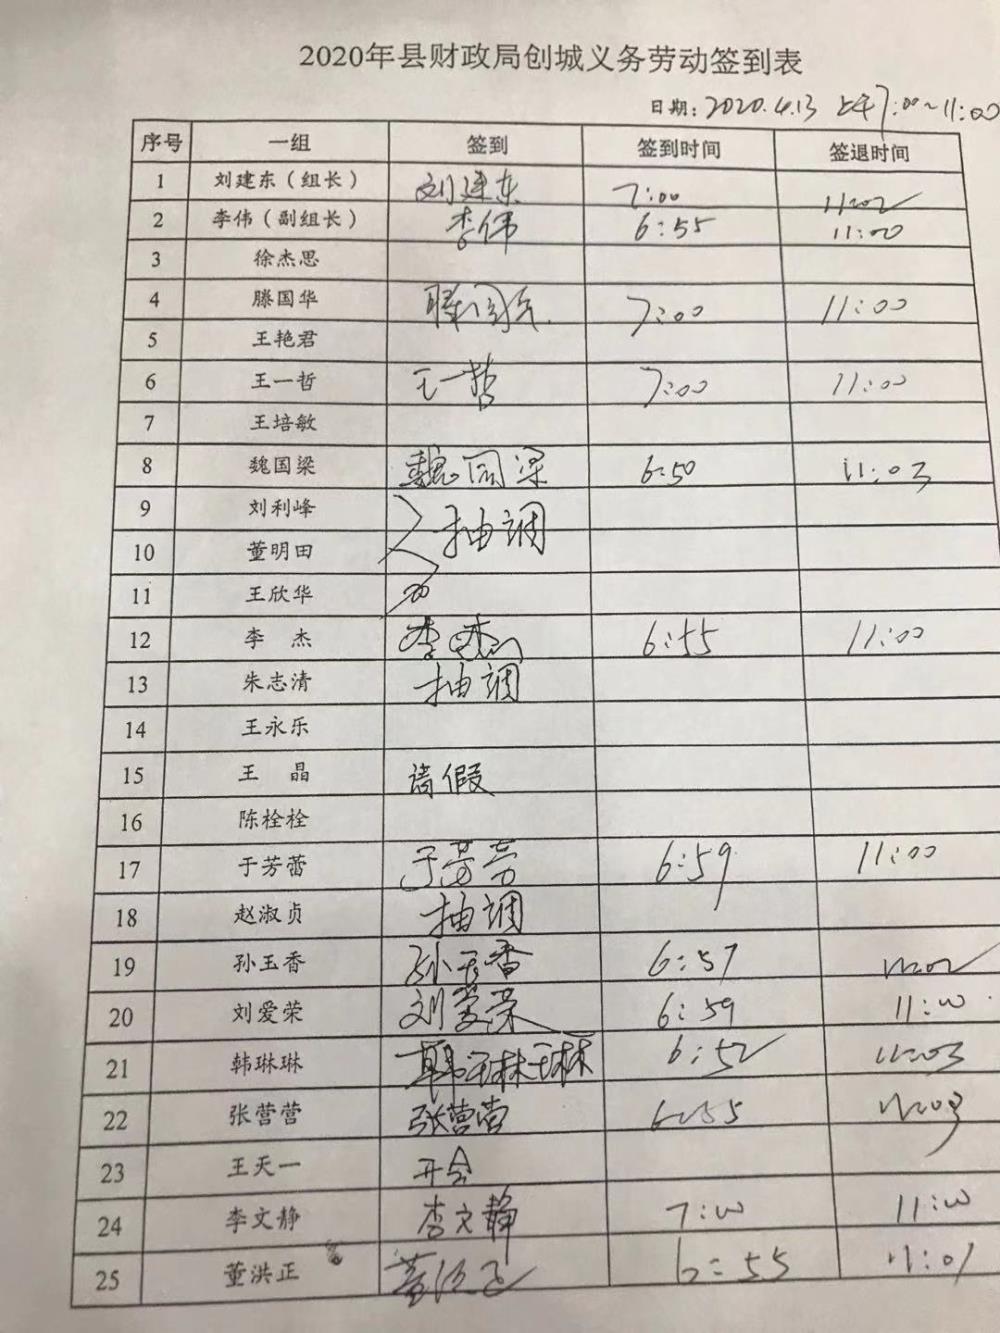 2020年县财政局创城义务劳动签到表
日期: 2020.4.13 上午7:00~11:00
序号 一组 签到 签到时间 签退时间
1 刘建东（组长） 刘建东 7:00 11:02
2 李伟（副组长） 李伟 6:55 11:00
3 徐杰思
4 滕国华 滕国华 7:00 11:00
5 王艳君
6 王一哲 王一哲 7:00 11:00
7 王培敏
8 魏国梁 魏国梁 6:50 11:03
9 刘利峰 抽调
10 董明田
11 王欣华
12 李 杰 李杰 6:55 11:00
13 朱志清 抽调
14 王永乐
15 王 晶 请假
16 陈栓栓
17 于芳蕾 于芳蕾 6:59 11:00
18 赵淑贞 抽调
19 孙玉香 孙玉香 6:57 11:02
20 刘爱荣 刘爱荣 6:59 11:00
21 韩琳琳 韩琳琳 6:52 11:03
22 张营营 张营营 6:55 11:03
23 王天一 开会
24 李文静 李文静 7:00 11:00
25 董洪正 董洪正 6:55 11:01